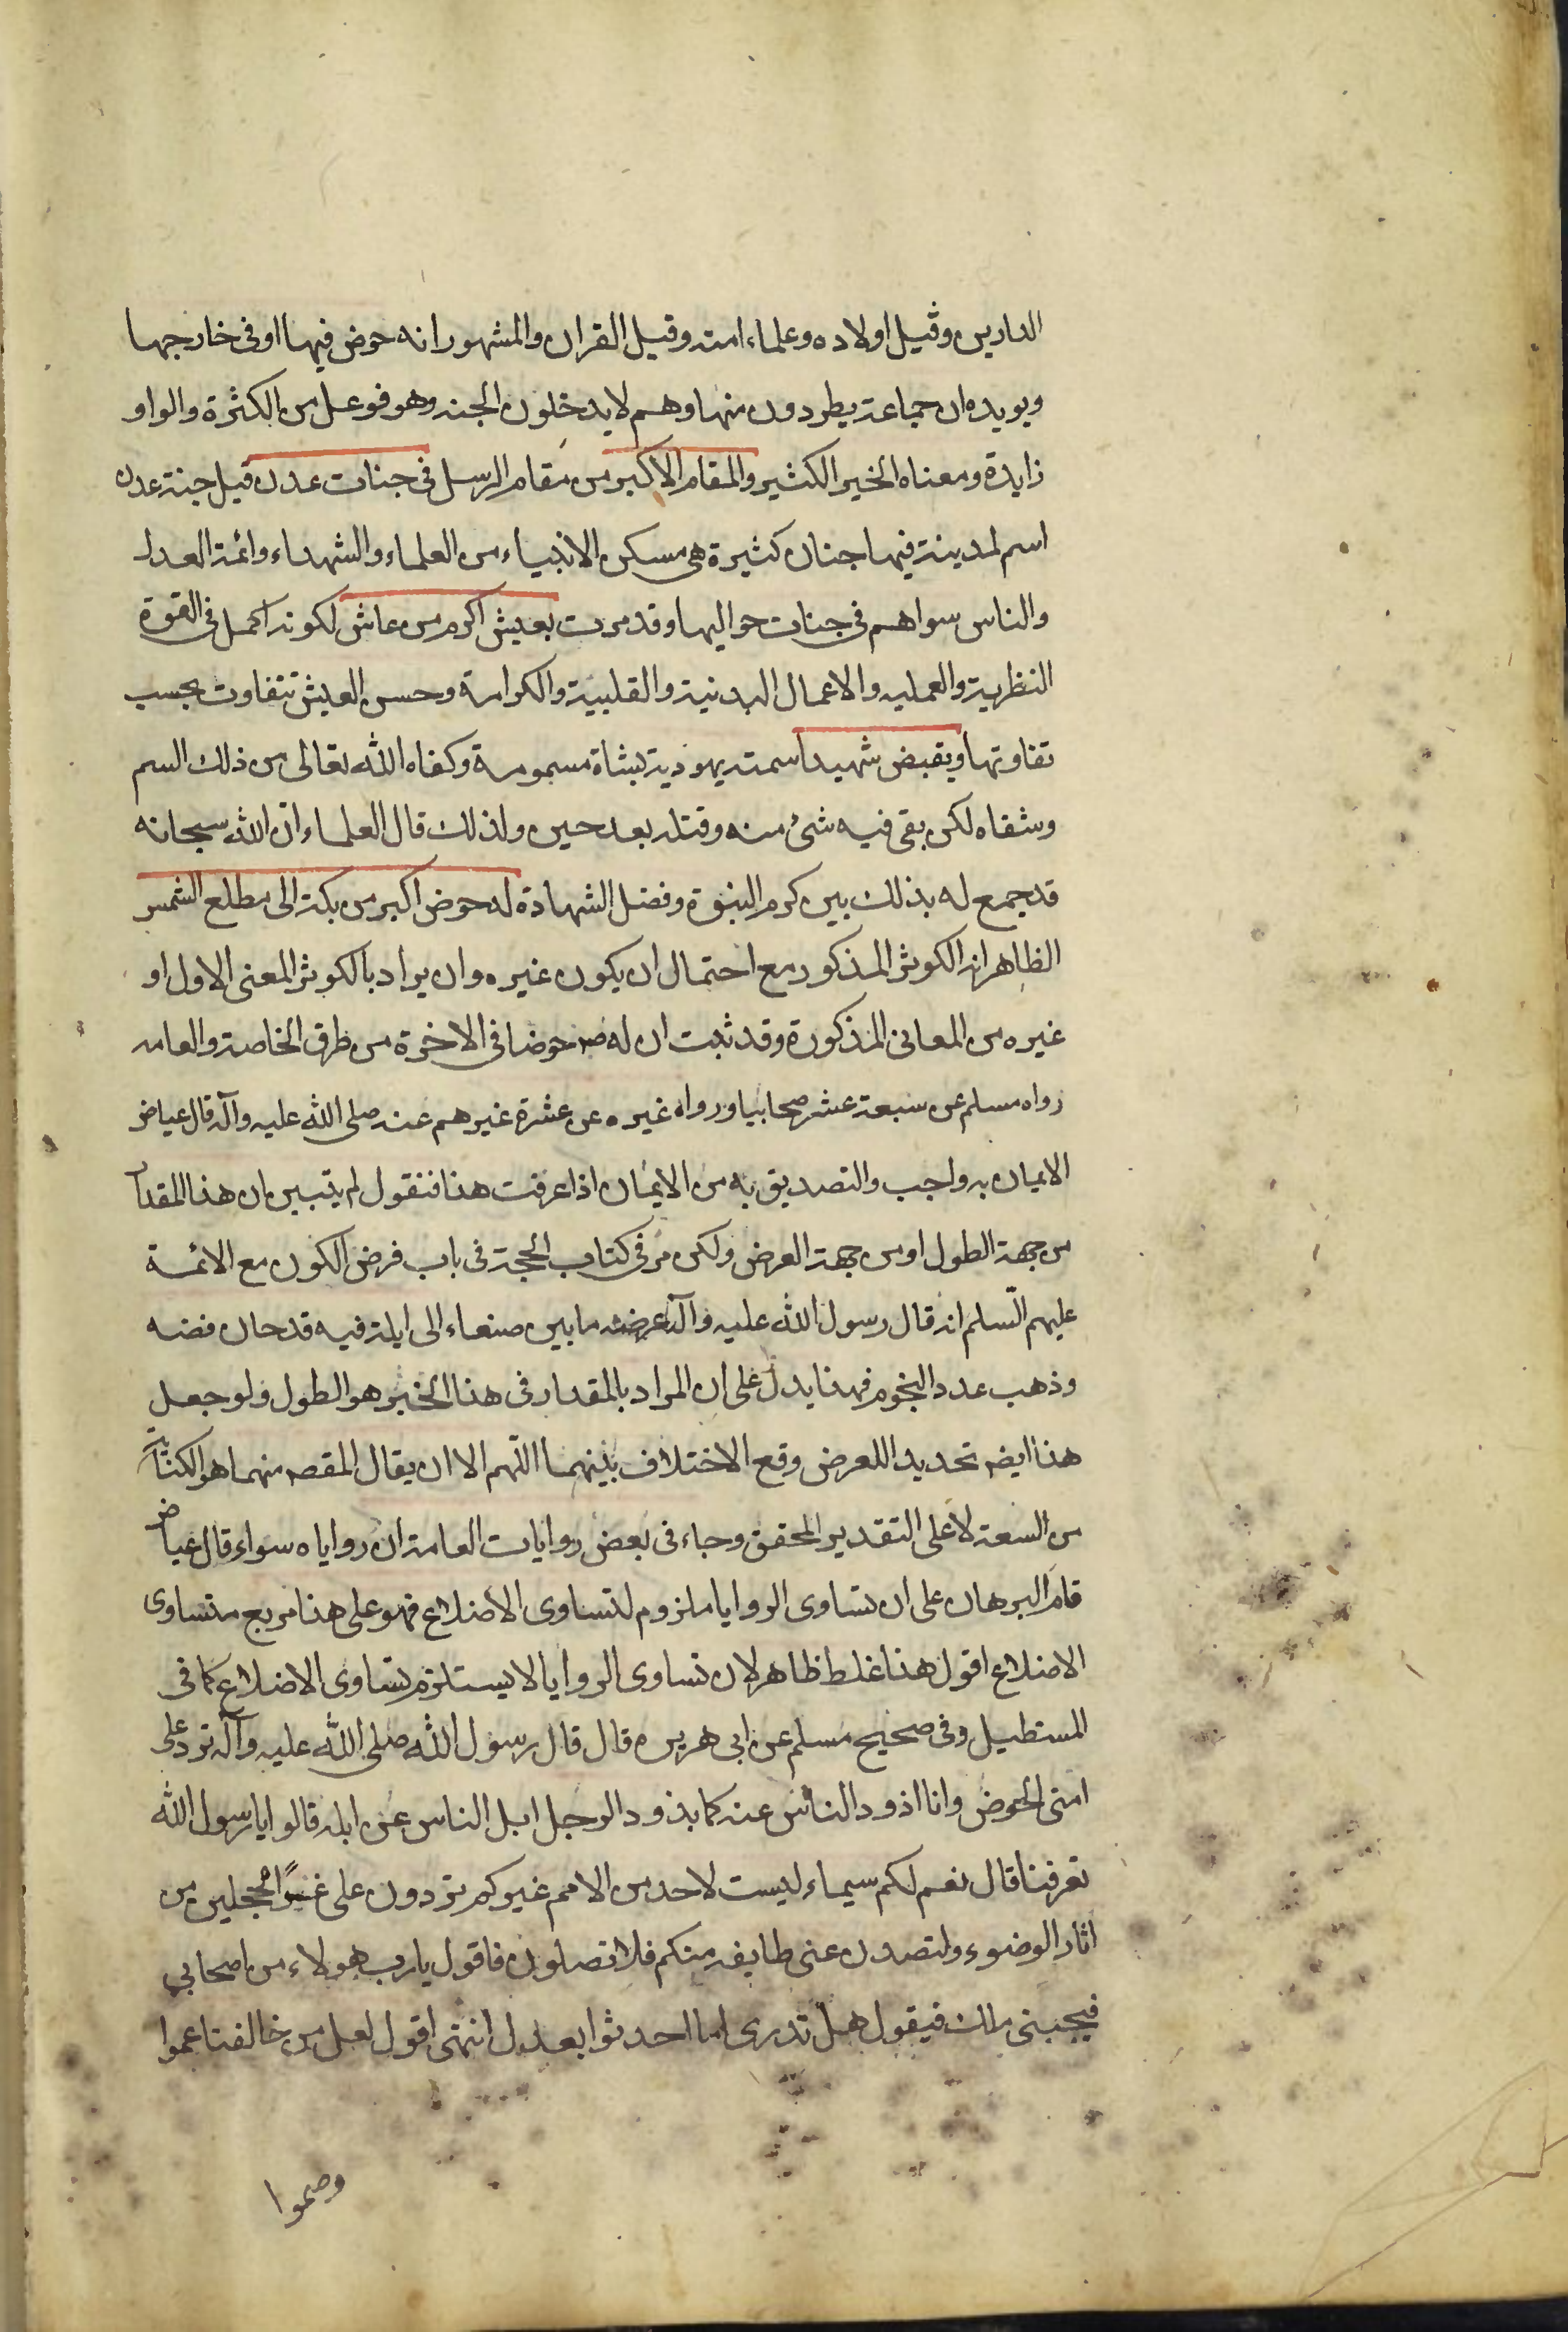 الدارين وقيل اولاده وعلماء امته وقيل القران والمشهور انه حوض فيها او فى خارجها
ويويده ان جماعة يطردون منها وهم لا يدخلون الجنه وهو فوعل من الكثرة والواو
زايدة ومعناه الخير الكثير والمقام الاكبر من مقام الرسل فى جنات عدن قيل جنة عدن
اسم لمدينة فيها جنان كثيرة هى مسكن الانبياء من العلماء والشهداء وائمة العدل
والناس سواهم فى جنات حواليها وقد مرت بعيش اكرم من عاش لكونه اكمل فى القوة
النظرية والعمليه والاعمال البدنية والقلبية والكرامة وحسن العيش تتفاوت بحسب
تفاوتها ويقبض شهيدا سمته يهودية بشاة مسمومة وكفاه الله تعالى من ذلك السم
وشفاه لكن بقى فيه شئ منه وقتله بعد حين ولذلك قال العلماء ان الله سبحانه
قد جمع له بذلك بين كرم النبوة وفضل الشهادة له حوض اكبر من بكة الى مطلع الشمس
الظاهر انه الكوثر المذكور مع احتمال ان يكون غيره وان يراد بالكوثر المعنى الاول او
غيره من المعانى المذكورة وقد ثبت ان له صم حوضا فى الاخرة من طرق الخاصة والعامه
رواه مسلم عن سبعة عشر صحابيا ورواه غيره عن عشرة غيرهم عنه صلى الله عليه وآله قال عياض
الايمان به واجب والتصديق به من الايمان اذا عرفت هذا فنقول لم يتبين ان هذا المقدار
من جهة الطول او من جهة العرض ولكن مر فى كتاب الحجة فى باب فرض الكون مع الائمة
عليهم السلم انه قال رسول الله عليه وآله عرضه ما بين صنعاء الى ايلة فيه قدحان فضه
وذهب عدد النجوم فهذا يدل على ان المراد بالمقدار فى هذا الخبر هو الطول ولو جعل
هذا ايضه تحديدا للعرض وقع الاختلاف بينهما اللهم الا ان يقال المقصه منهما هو الكناية
من السعة لا على التقدير المحقق وجاء فى بعض روايات العامة ان رواياه سواء قال عياض
قام البرهان على ان تساوى الروايا ملزوم لتساوى الاضلاع فهو على هذا مربع متساوى
الاضلاع اقول هذا غلط ظاهر لان تساوى الروايا لا يستلزم تساوى الاضلاع كما فى
المستطيل وفى صحيح مسلم عن ابى هريره قال قال رسول الله صلى الله عليه وآله ترد على
امتى الحوض وانا اذود الناس عنه كما يذود الرجل ابل الناس عن ابله قالوا يا رسول الله
تعرفنا قال نعم لكم سيماء ليست لاحد من الامم غيركم تردون على غرا محجلين من
اثار الوضوء ولتصدن عنى طايفه منكم فلا تصلون فاقول يا رب هولاء من اصحابي
فيجيبنى ملك فيقول هل تدرى اما احدثوا بعدك انتهى اقول لعل من خالفنا عموا
وصموا